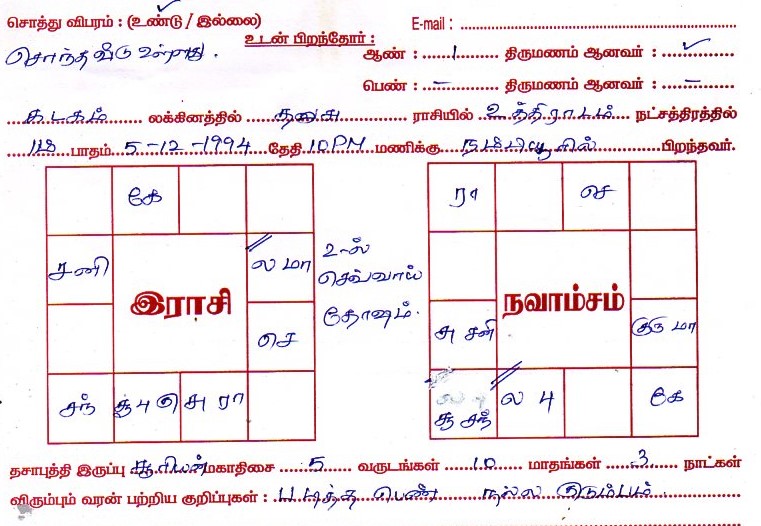 சொத்து விபரம் : (உண்டு / இல்லை)
E-mail :
சொந்த வீடு உள்ளது.
உடன் பிறந்தோர் :
ஆண் : 1 திருமணம் ஆனவர் : ✓
பெண் : – திருமணம் ஆனவர் : –
கடகம் லக்கினத்தில் தனுசு ராசியில் உத்திராடம் நட்சத்திரத்தில்
1ம் பாதம் 5-12-1994 தேதி 10PM மணிக்கு நம்பியூரில் பிறந்தவர்.
கே
சனி
ல மா
இராசி
செ
சந்
சூ 4 குரு சு ரா
2-ல்
செவ்வாய்
தோஷம்.
ரா
செ
நவாம்சம்
சு சனி
குரு மா
சூ சந்
ல 4
கே
தசாபுத்தி இருப்பு சூரியன் மகாதிசை 5 வருடங்கள் 10 மாதங்கள் 3 நாட்கள்
விரும்பும் வரன் பற்றிய குறிப்புகள் : படித்த பெண் நல்ல குடும்பம்.